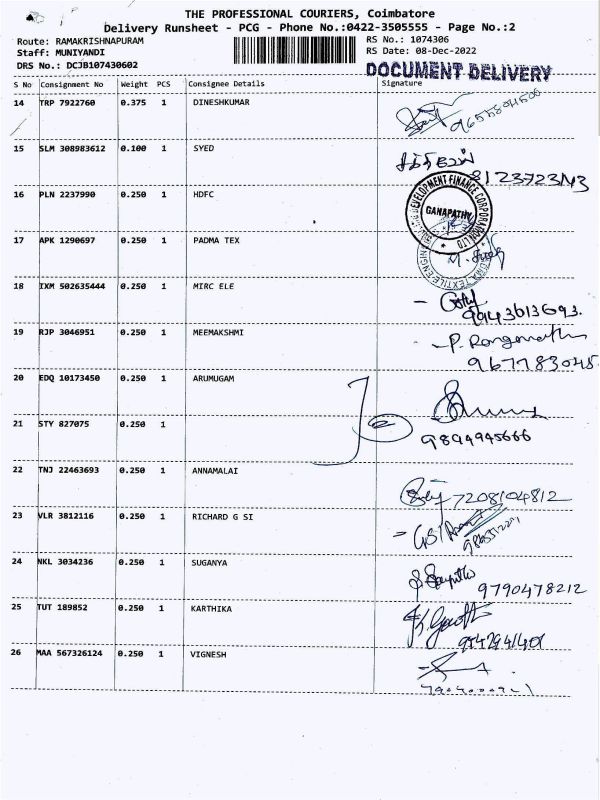 THE PROFESSIONAL COURIERS, Coimbatore
Delivery Runsheet - PCG - Phone No.:0422-3505555 - Page No.:2
Route: RAMAKRISHNAPURAM
Staff: MUNIYANDI
DRS No.: DCJB107430602
RS No.: 1074306
RS Date: 08-Dec-2022
DOCUMENT DELIVERY
S No Consignment No Weight PCS Consignee Details Signature
14 TRP 7922760 0.375 1 DINESHKUMAR
15 SLM 308983612 0.100 1 SYED
16 PLN 2237990 0.250 1 HDFC
DEVELOPMENT FINANCE CORPORATION LTD
GANAPATHY
17 APK 1290697 0.250 1 PADMA TEX
18 IXM 502635444 0.250 1 MIRC ELE
9943613693.
19 RJP 3046951 0.250 1 MEEMAKSHMI
9677783045
20 EDQ 10173450 0.250 1 ARUMUGAM
21 STY 827075 0.250 1
9894945666
22 TNJ 22463693 0.250 1 ANNAMALAI
7208104812
23 VLR 3812116 0.250 1 RICHARD G SI
24 NKL 3034236 0.250 1 SUGANYA
9790478212
25 TUT 189852 0.250 1 KARTHIKA
26 MAA 567326124 0.250 1 VIGNESH